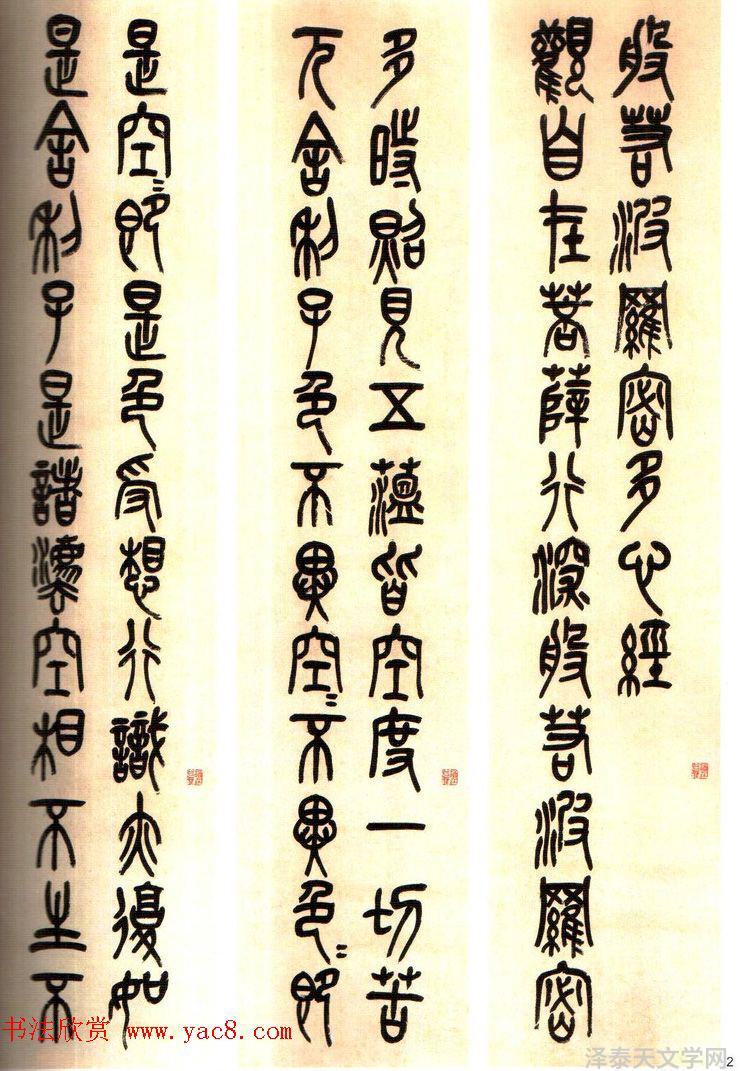 般若波羅密多心經
觀自在菩薩行深般若波羅密
多時照見五蘊皆空度一切苦
厄舍利子色不異空〻不異色〻即
是空〻即是色受想行識亦復如
是舍利子是諸灋空相不生不
书法欣赏 www.yac8.com
泽泰天文学网
2